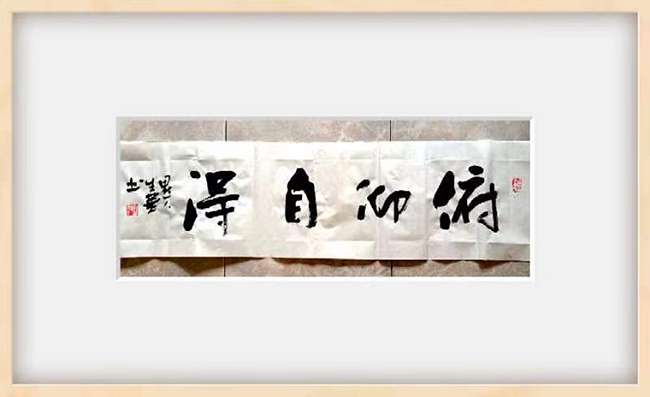 俯仰自得